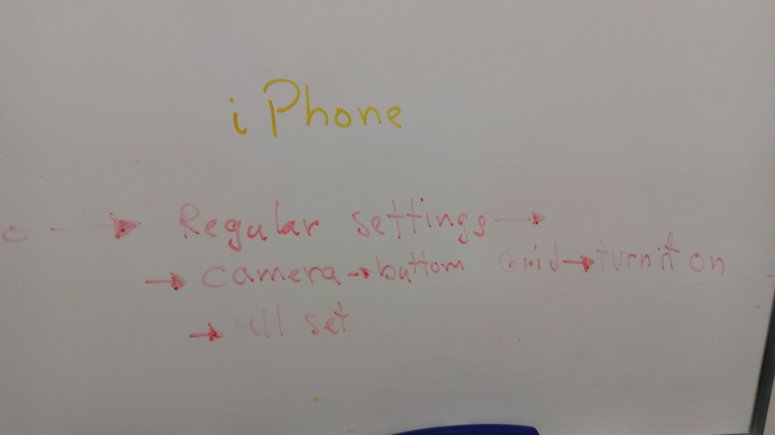 iPhone
o → Regular settings →
→ camera → buttom Grid → turn it on
→ all set